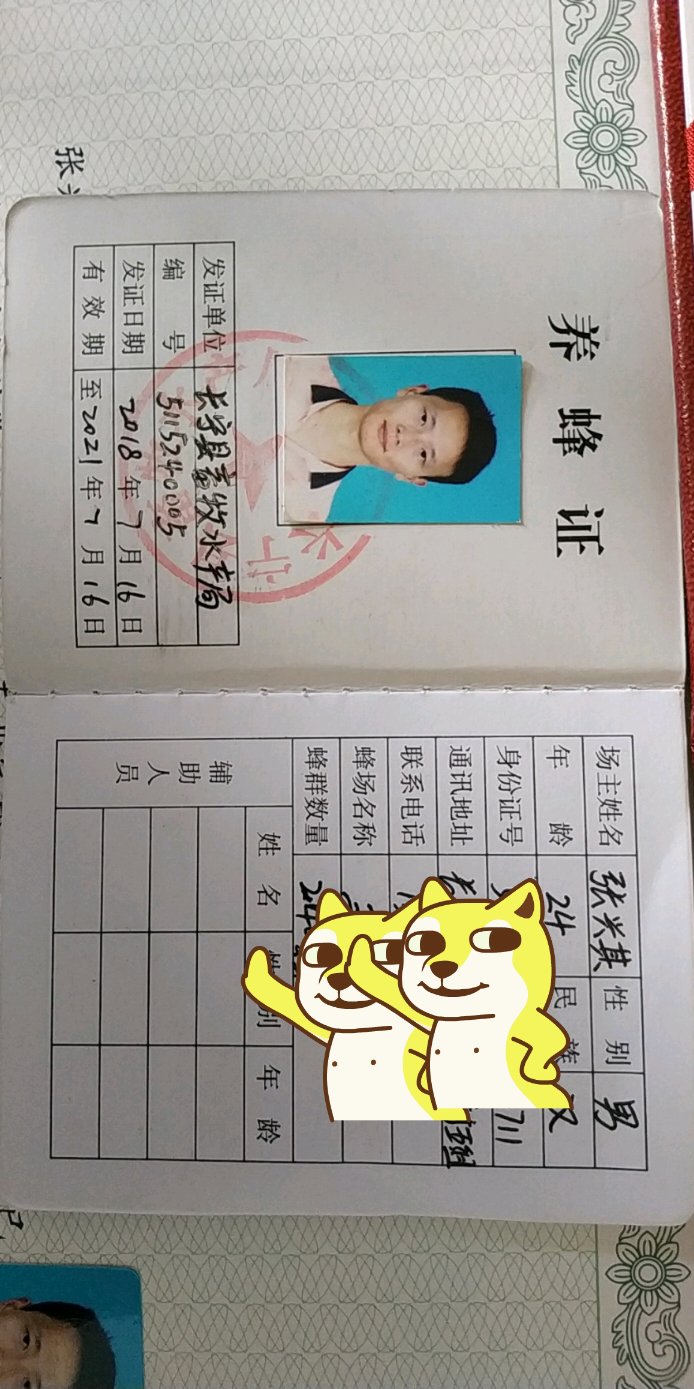 张兴
养蜂证
发证单位 长宁县畜牧水产局
编号 5115240005
发证日期 2018年7月16日
有效期 至2021年7月16日
场主姓名 张兴其 性别 男
年龄 24 民族 汉
身份证号
通讯地址
联系电话
蜂场名称
蜂群数量
辅助人员 姓名 性别 年龄